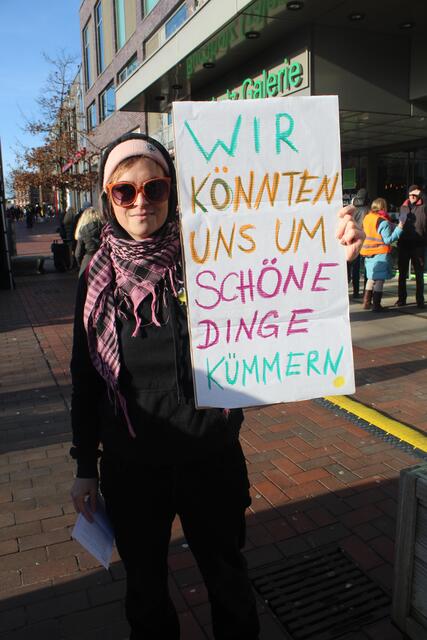 Galerie
WIR
KÖNNTEN
UNS UM
SCHÖNE
DINGE
KÜMMERN.